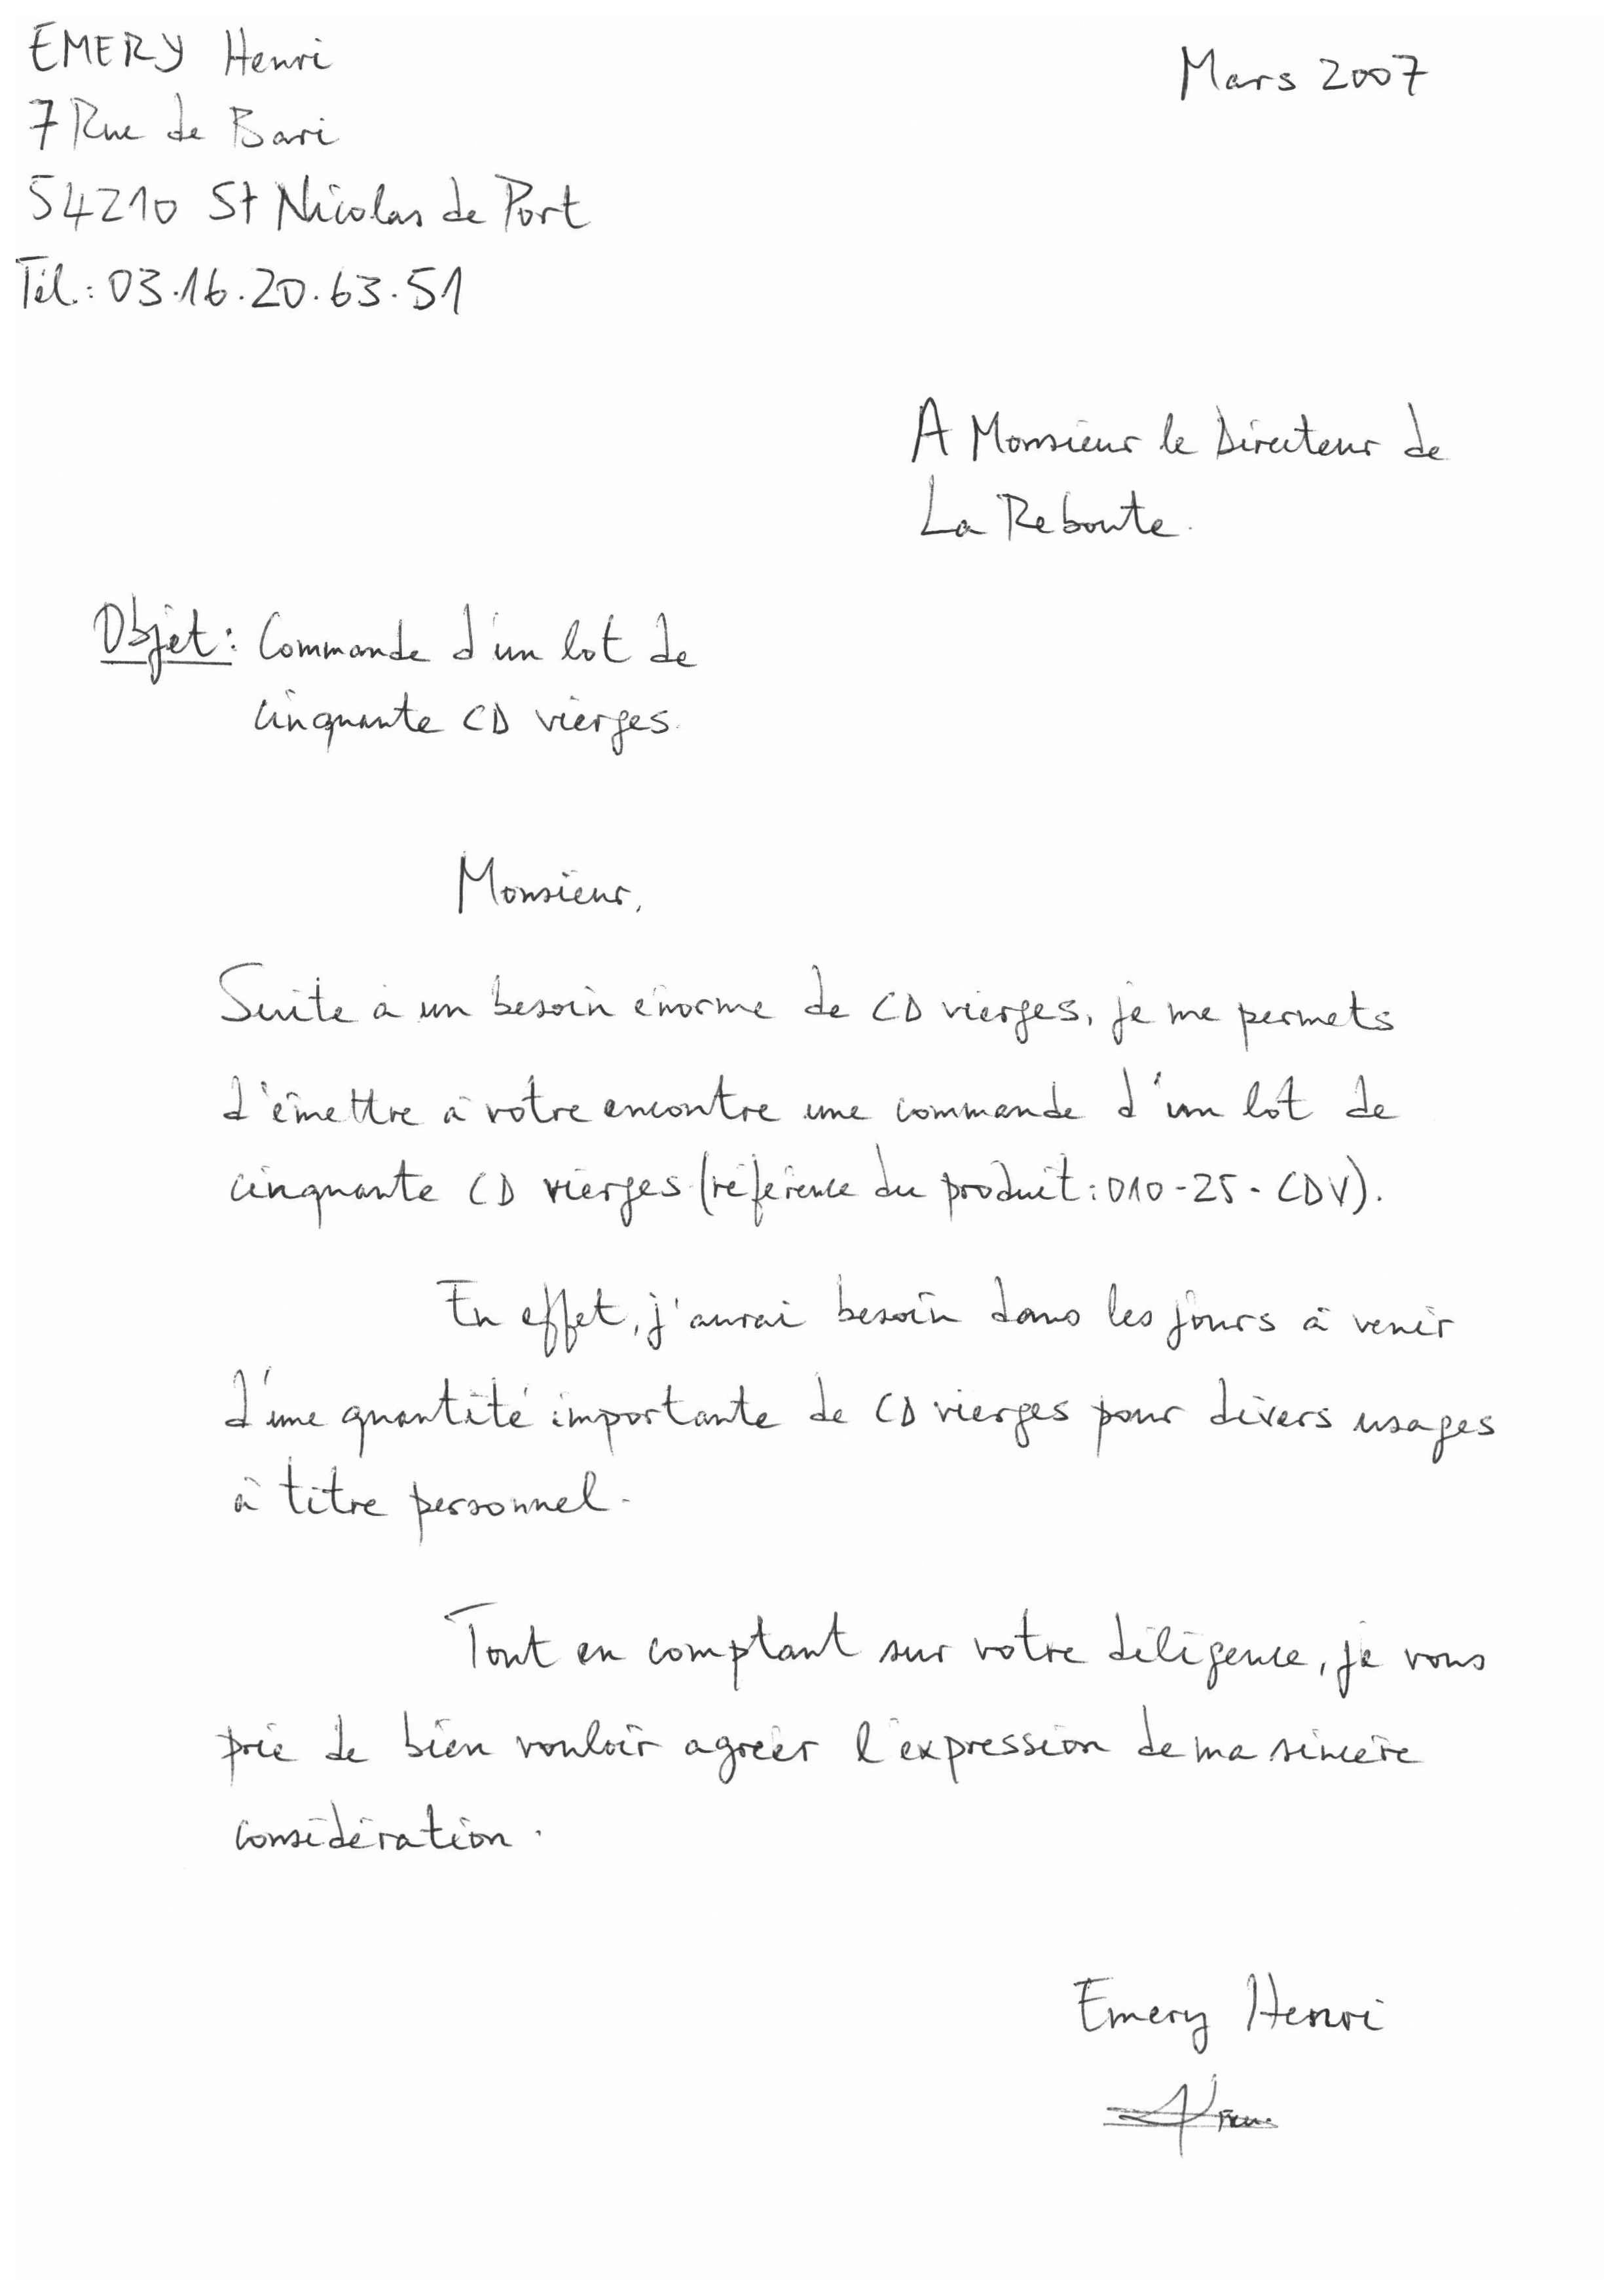 EMERY Henri
Mars 2007
7 Rue de Bari
54210 St Nicolas de Port
Tél.: 03.16.20.63.51
A Monsieur le Directeur de
La Reboute.
Objet: Commande d'un lot de
cinquante CD vierges.
Monsieur,
Suite à un besoin énorme de CD vierges, je me permets
d'émettre à votre encontre une commande d'un lot de
cinquante CD vierges (référence du produit: 010-25-CDV).
En effet, j'aurai besoin dans les jours à venir
d'une quantité importante de CD vierges pour divers usages
à titre personnel.
Tout en comptant sur votre diligence, je vous
prie de bien vouloir agréer l'expression de ma sincère
considération.
Emery Henri